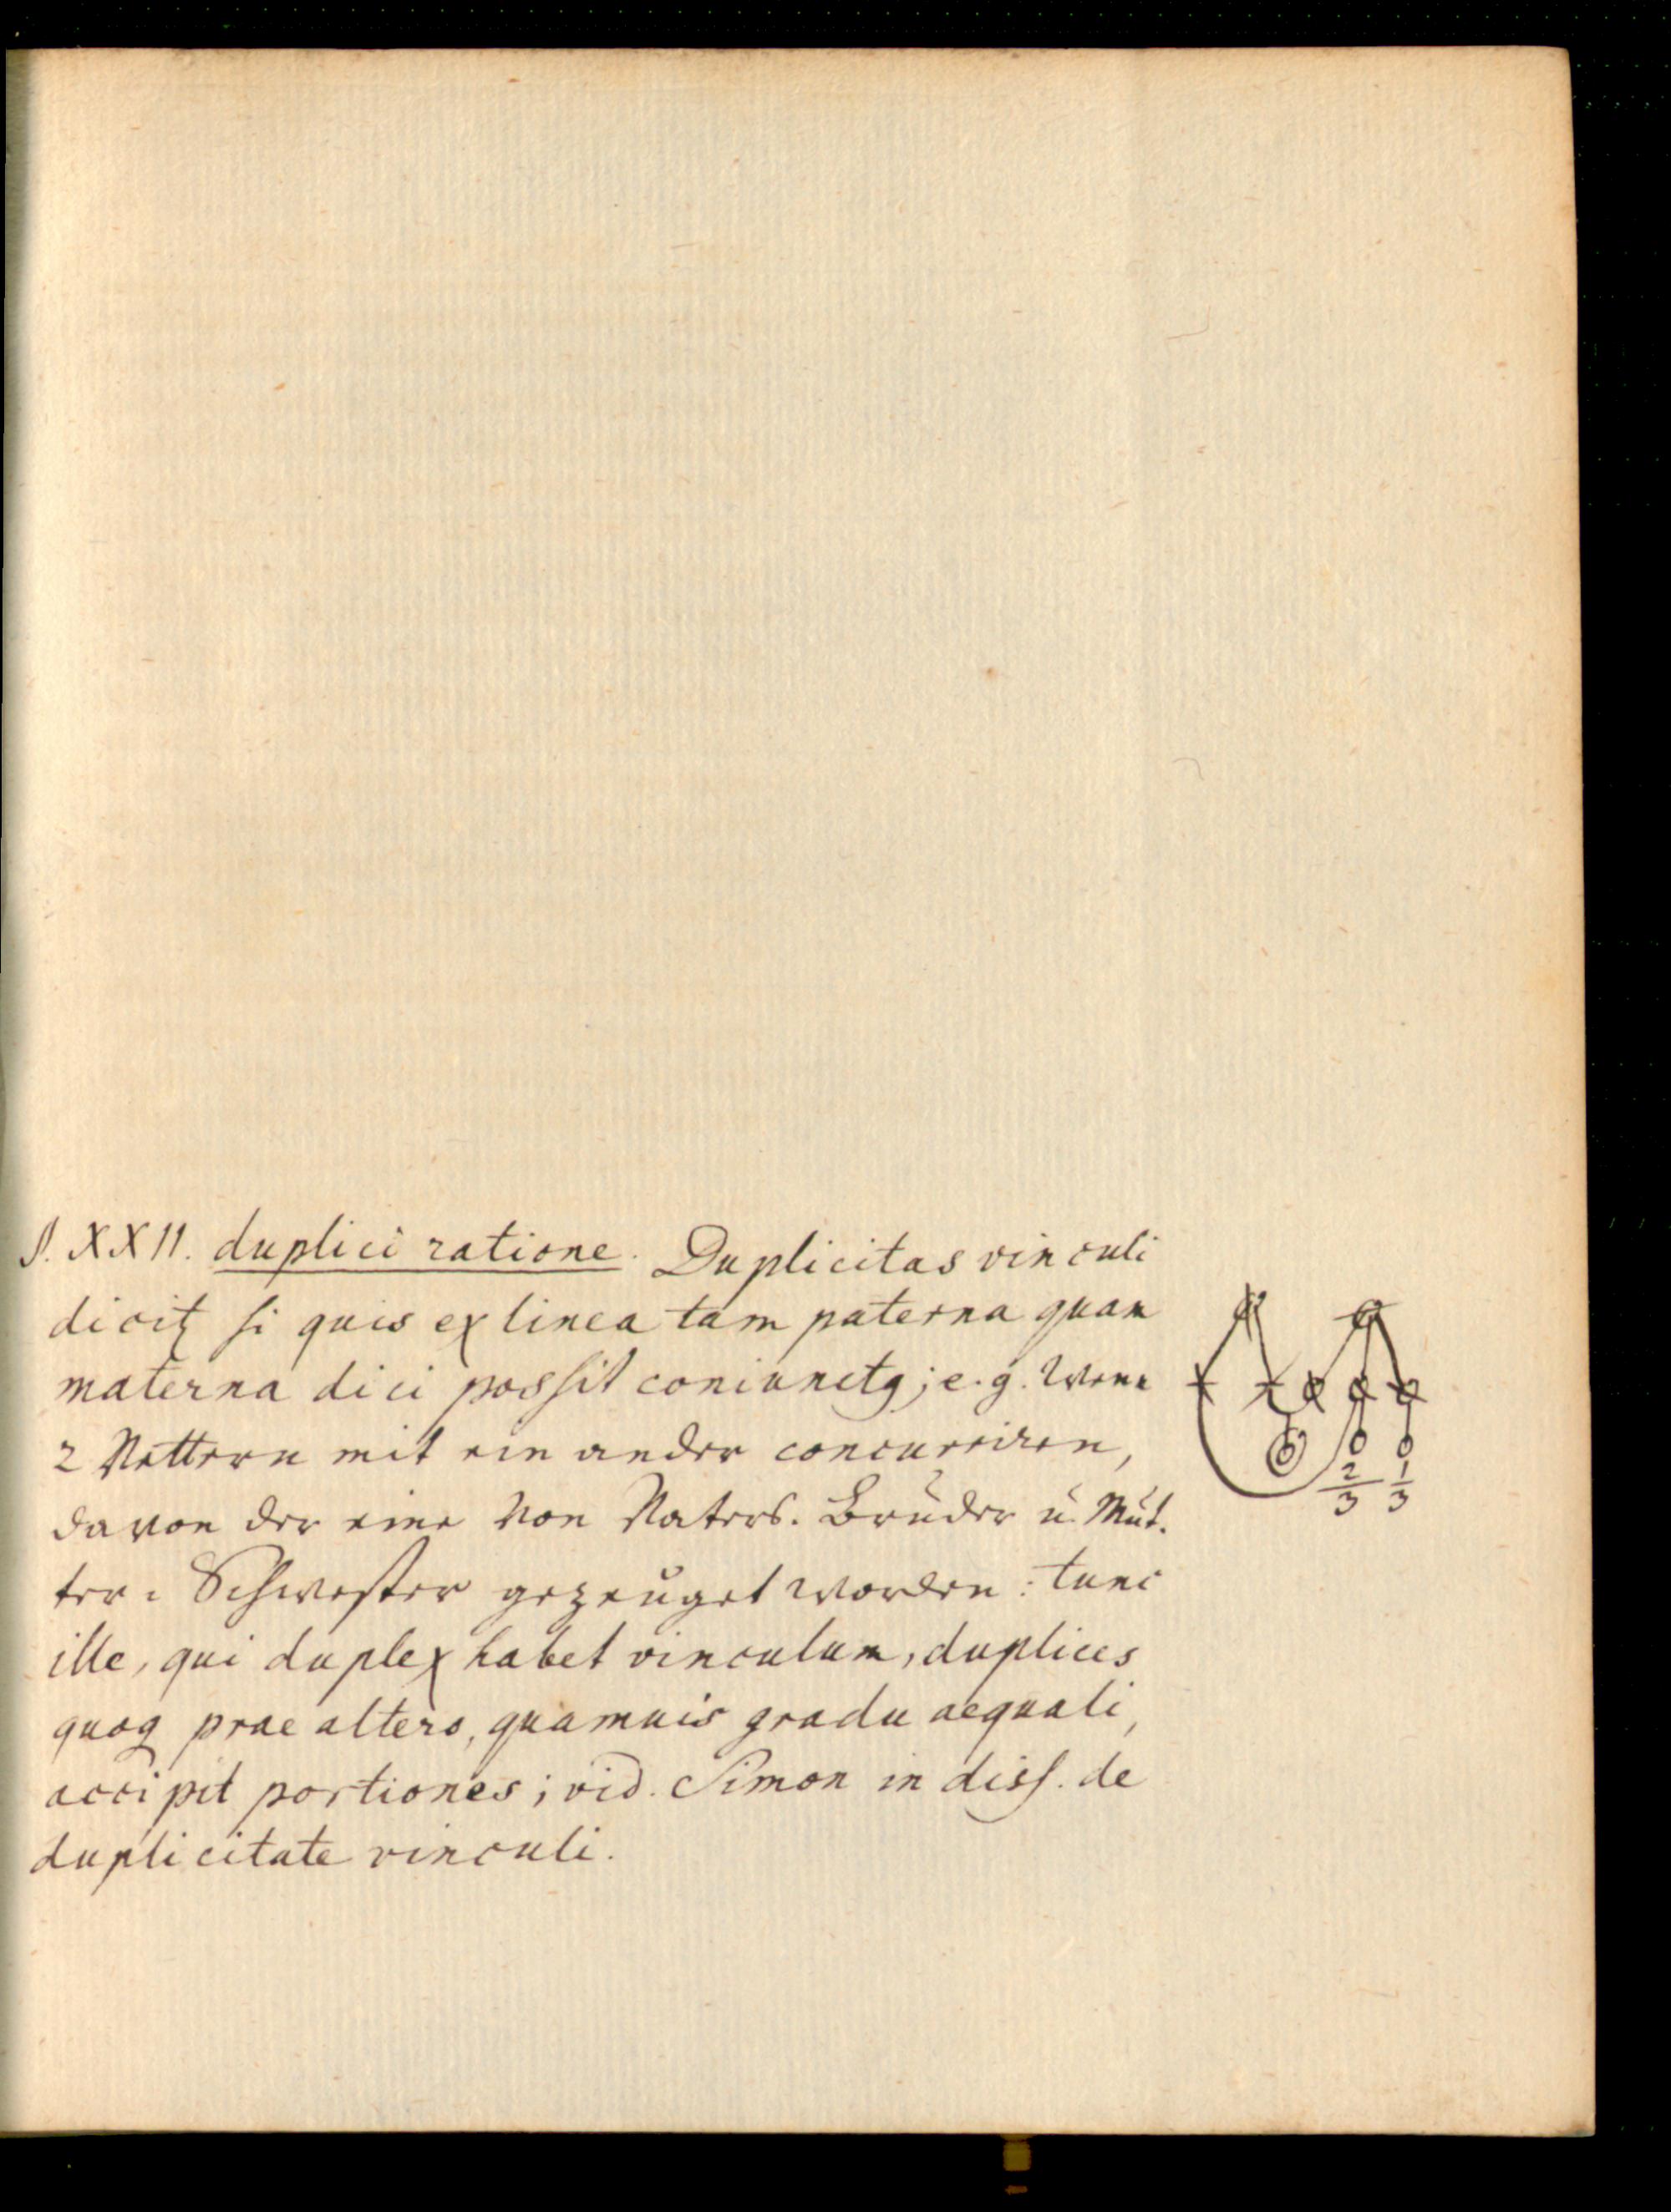 §. XXII. duplici ratione. Duplicitas vinculi
dicitꝛ si quis ex linea tam paterna quam
materna dici possit coniunctꝯ; e. g. wenn
2 Vettern mit ein ander concurriren,
davon der eine von Vaters. Bruder u. Mut-
ter. Schwester gezeuget worden: tunc
ille, qui duplex habet vinculum, duplices
quoq prae altero, quamuis gradu aequali,
accipit portiones; vid. Simon in diss. de
duplicitate vinculi.
2/3 1/3